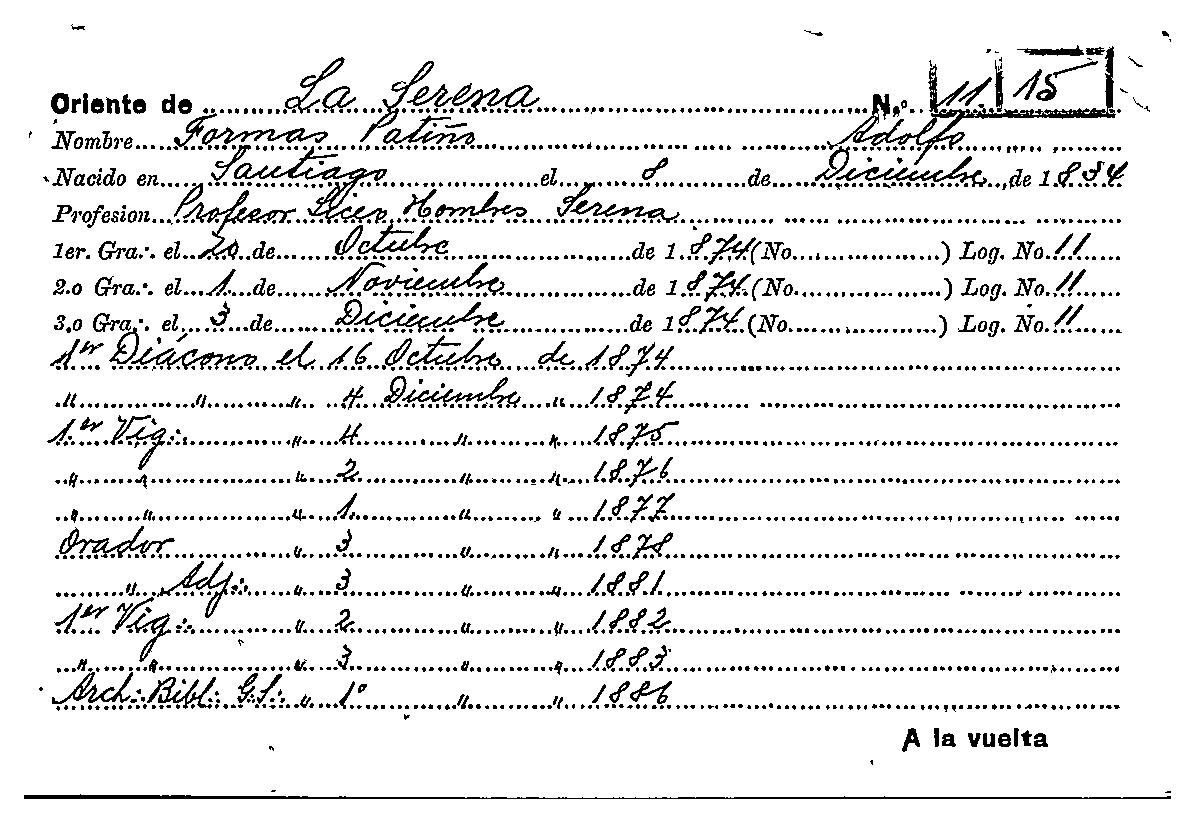 Oriente de La Serena N.º 11 15
Nombre Formas Patiño Adolfo
Nacido en Santiago el 8 de Diciembre de 1834
Profesion Profesor Liceo Hombres Serena
1er. Gra∴ el 20 de Octubre de 1874 (No ) Log. No 11
2.o Gra∴ el 1 de Noviembre de 1874 (No ) Log. No 11
3.o Gra∴ el 3 de Diciembre de 1874 (No ) Log. No 11
1er Diácono el 16 Octubre de 1874
" " " 4 Diciembre " 1874
1.er Vig∴ " 4 " " 1875
" " " 2 " " 1876
" " " 1 " " 1877
Orador " 3 " " 1878
" Adj∴ " 3 " " 1881
1er Vig∴ " 2 " " 1882
" " " 3 " " 1883
Arch∴ Bibl∴ G.S∴ " 1º " " 1886
A la vuelta